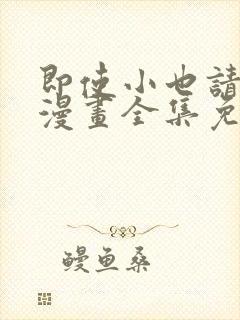 即使小也請
漫畫全集免
鳗鱼桑